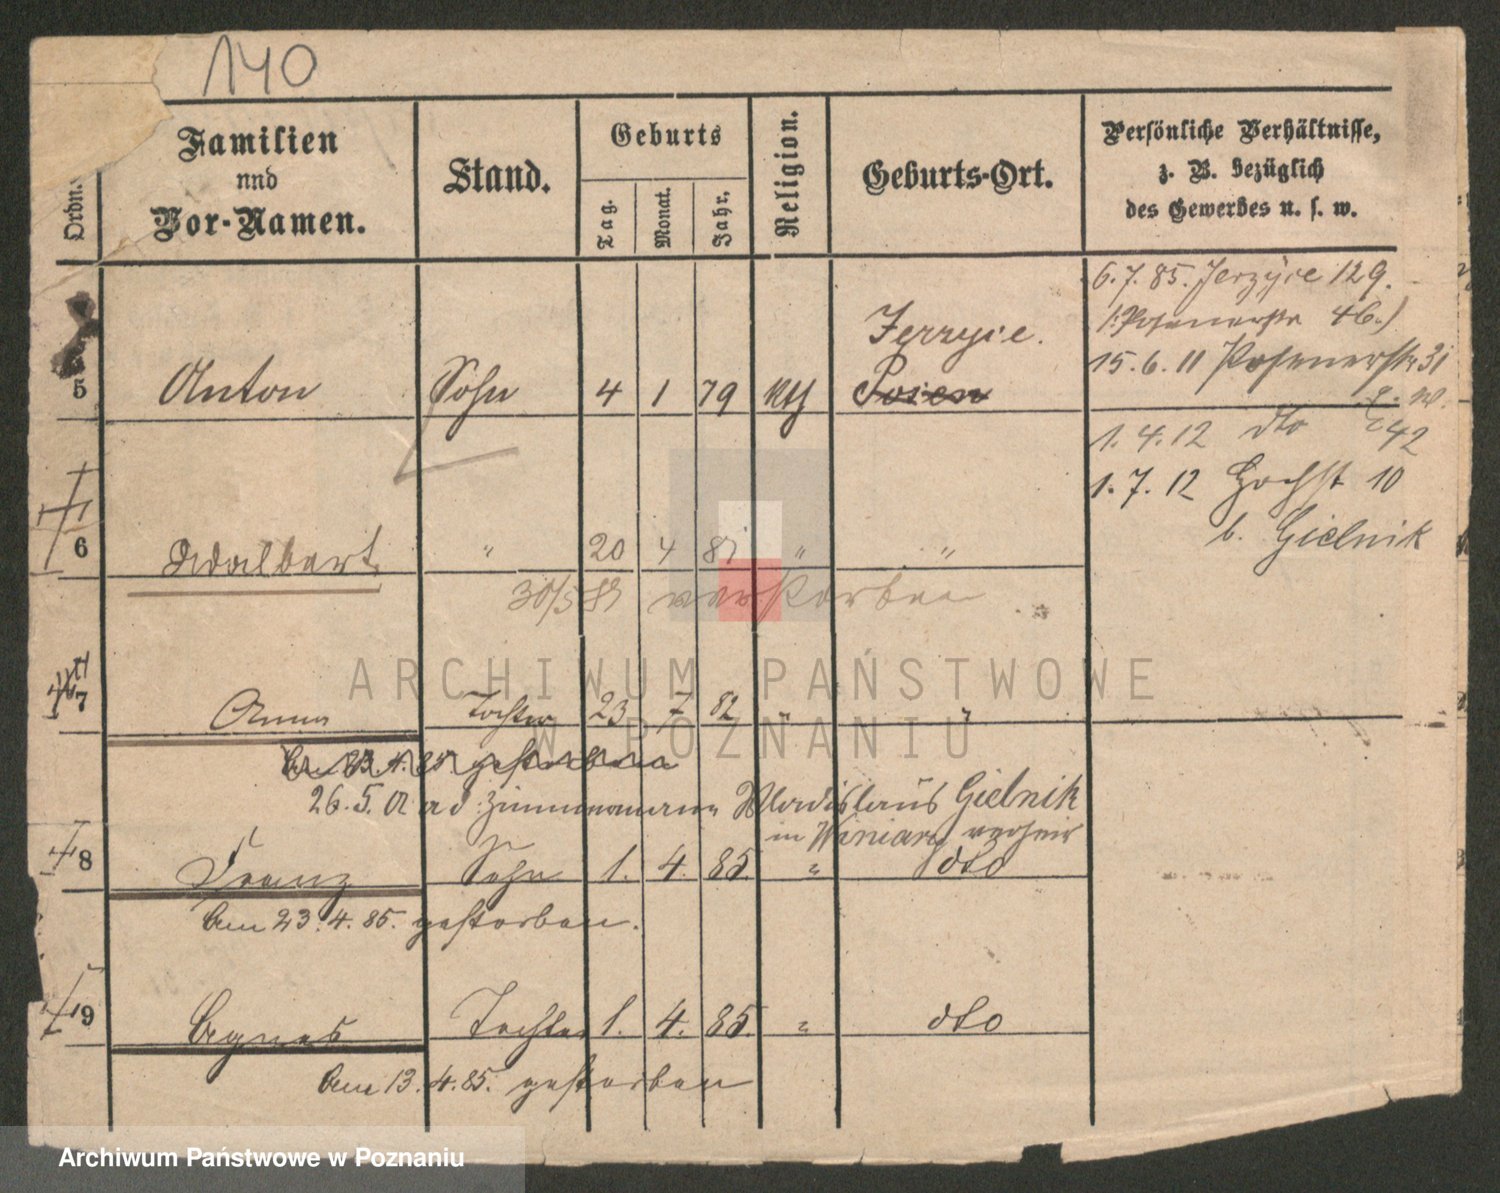 140
Ordn.
Familien
und
Vor-Namen.
Stand.
Geburts
Tag.
Monat.
Jahr.
Religion.
Geburts-Ort.
Persönliche Verhältnisse,
z. B. bezüglich
des Gewerbes u. s. w.
6.7.85. Jerzyce 129.
(:Posenerstr 46.)
15.6.11 Posenerstr 31
Jerzyce.
5 Anton Sohn 4 1 79 kth Posen
1.4.12 dto 42
1.7.12 Hochst 10
b. Gielnik
6 Adalbert " 20 4 81 " "
30/5 81 verstorben
7 Anna Tochter 23 7 82 " "
Am 23.4.85 gestorben
26.5. ad Zimmermann Wladislaus Gielnik
in Winiary verheir
8 Franz Sohn 1. 4. 85. " dto
Am 23.4.85. gestorben.
9 Agnes Tochter 1. 4. 85. " dto
Am 13.4.85. gestorben
ARCHIWUM PAŃSTWOWE
W POZNANIU
Archiwum Państwowe w Poznaniu